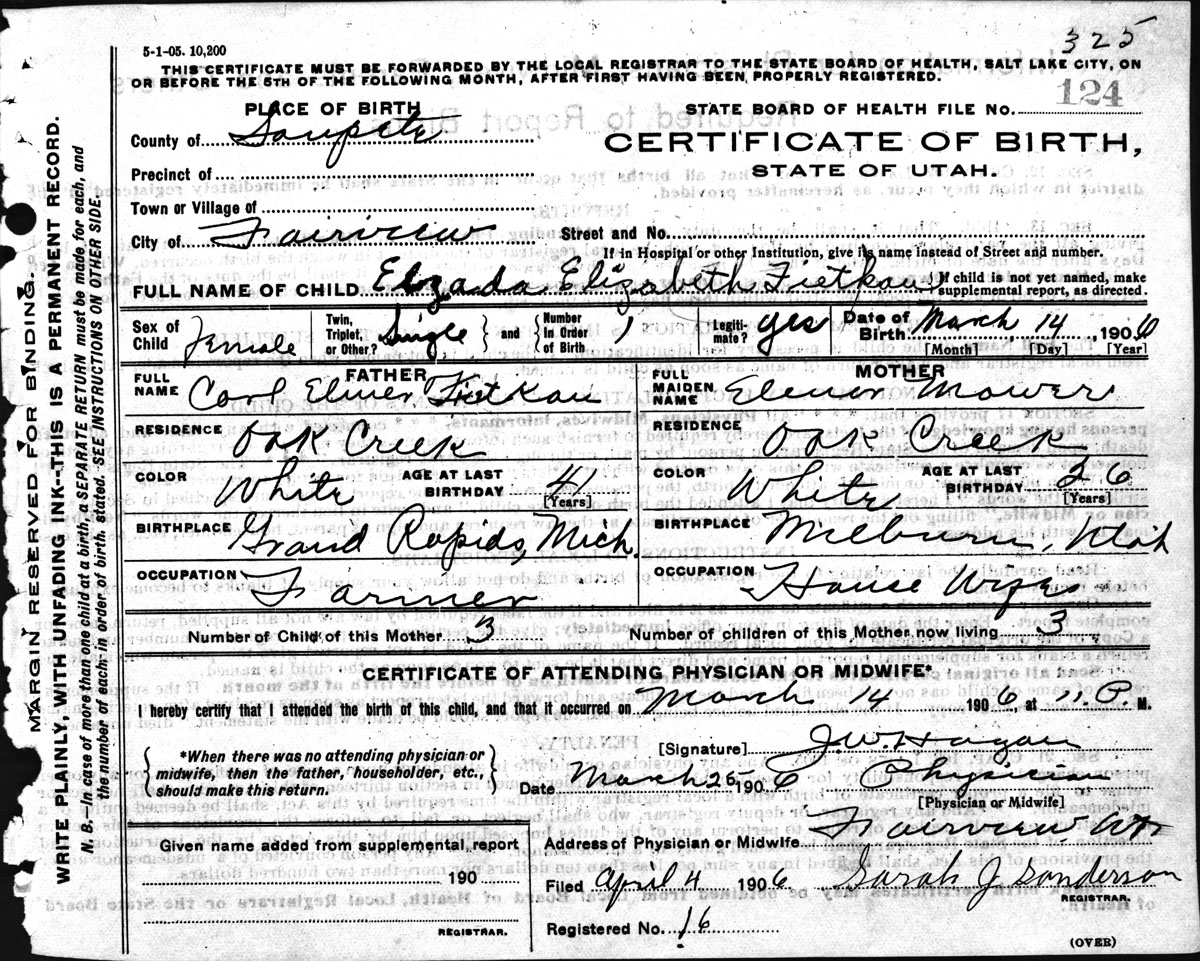 325
5-1-05. 10,200
THIS CERTIFICATE MUST BE FORWARDED BY THE LOCAL REGISTRAR TO THE STATE BOARD OF HEALTH, SALT LAKE CITY, ON
OR BEFORE THE 5TH OF THE FOLLOWING MONTH, AFTER FIRST HAVING BEEN PROPERLY REGISTERED.
PLACE OF BIRTH
STATE BOARD OF HEALTH FILE NO. 124
County of Sanpete
CERTIFICATE OF BIRTH,
STATE OF UTAH.
Precinct of
Town or Village of
City of Fairview Street and No.
If in Hospital or other Institution, give its name instead of Street and number.
FULL NAME OF CHILD Elzada Elizabeth Fietkau { If child is not yet named, make supplemental report, as directed.
Sex of Child Female Twin, Triplet, or Other? Single } and { Number in Order of Birth 1 Legitimate? yes Date of Birth March 14, 1906
[Month] [Day] [Year]
FATHER MOTHER
FULL NAME Carl Elmer Fietkau FULL MAIDEN NAME Elenor Mower
RESIDENCE Oak Creek RESIDENCE Oak Creek
COLOR White AGE AT LAST BIRTHDAY 41 [Years] COLOR White AGE AT LAST BIRTHDAY 26 [Years]
BIRTHPLACE Grand Rapids, Mich. BIRTHPLACE Milburn, Utah
OCCUPATION Farmer OCCUPATION House Wife
Number of Child of this Mother 3 Number of children of this Mother now living 3
CERTIFICATE OF ATTENDING PHYSICIAN OR MIDWIFE*
I hereby certify that I attended the birth of this child, and that it occurred on March 14 1906, at 11. P. M.
*When there was no attending physician or
midwife, then the father, householder, etc.,
should make this return.
[Signature] J. W. Hagan
Date March 25 1906 Physician
[Physician or Midwife]
Given name added from supplemental report
Address of Physician or Midwife Fairview Ut
190
Filed April 4 1906 Sarah J Sanderson
REGISTRAR.
REGISTRAR.
Registered No. 16
(OVER)
MARGIN RESERVED FOR BINDING.
WRITE PLAINLY, WITH UNFADING INK--THIS IS A PERMANENT RECORD.
N. B.—In case of more than one child at a birth, a SEPARATE RETURN must be made for each, and
the number of each, in order of birth, stated. SEE INSTRUCTIONS ON OTHER SIDE.